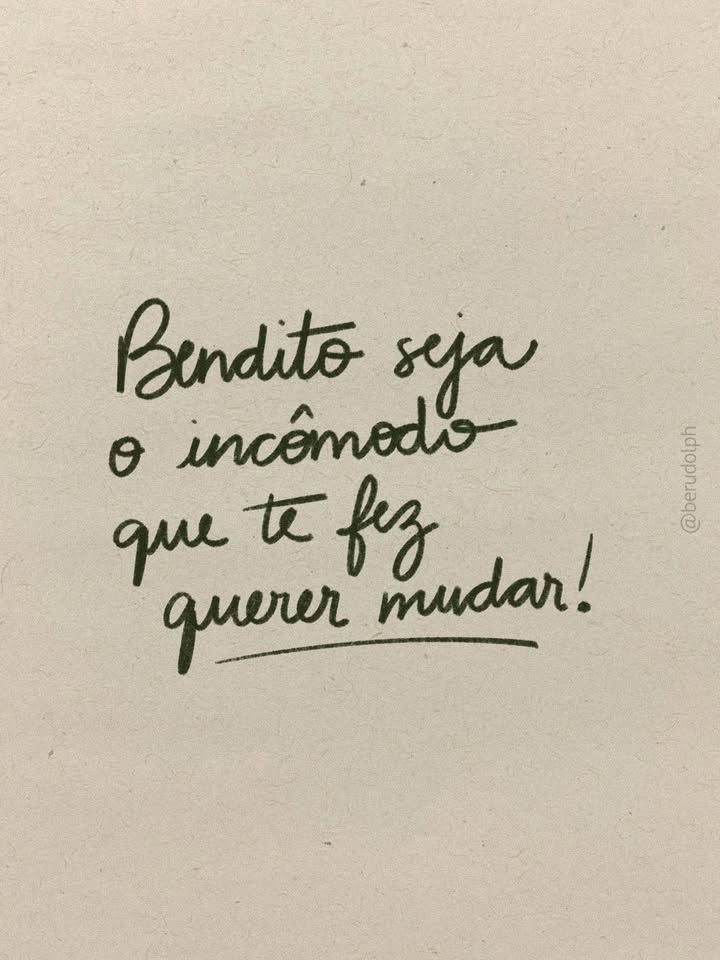 Bendito seja
o incômodo
que te fez
querer mudar!
@berudolph